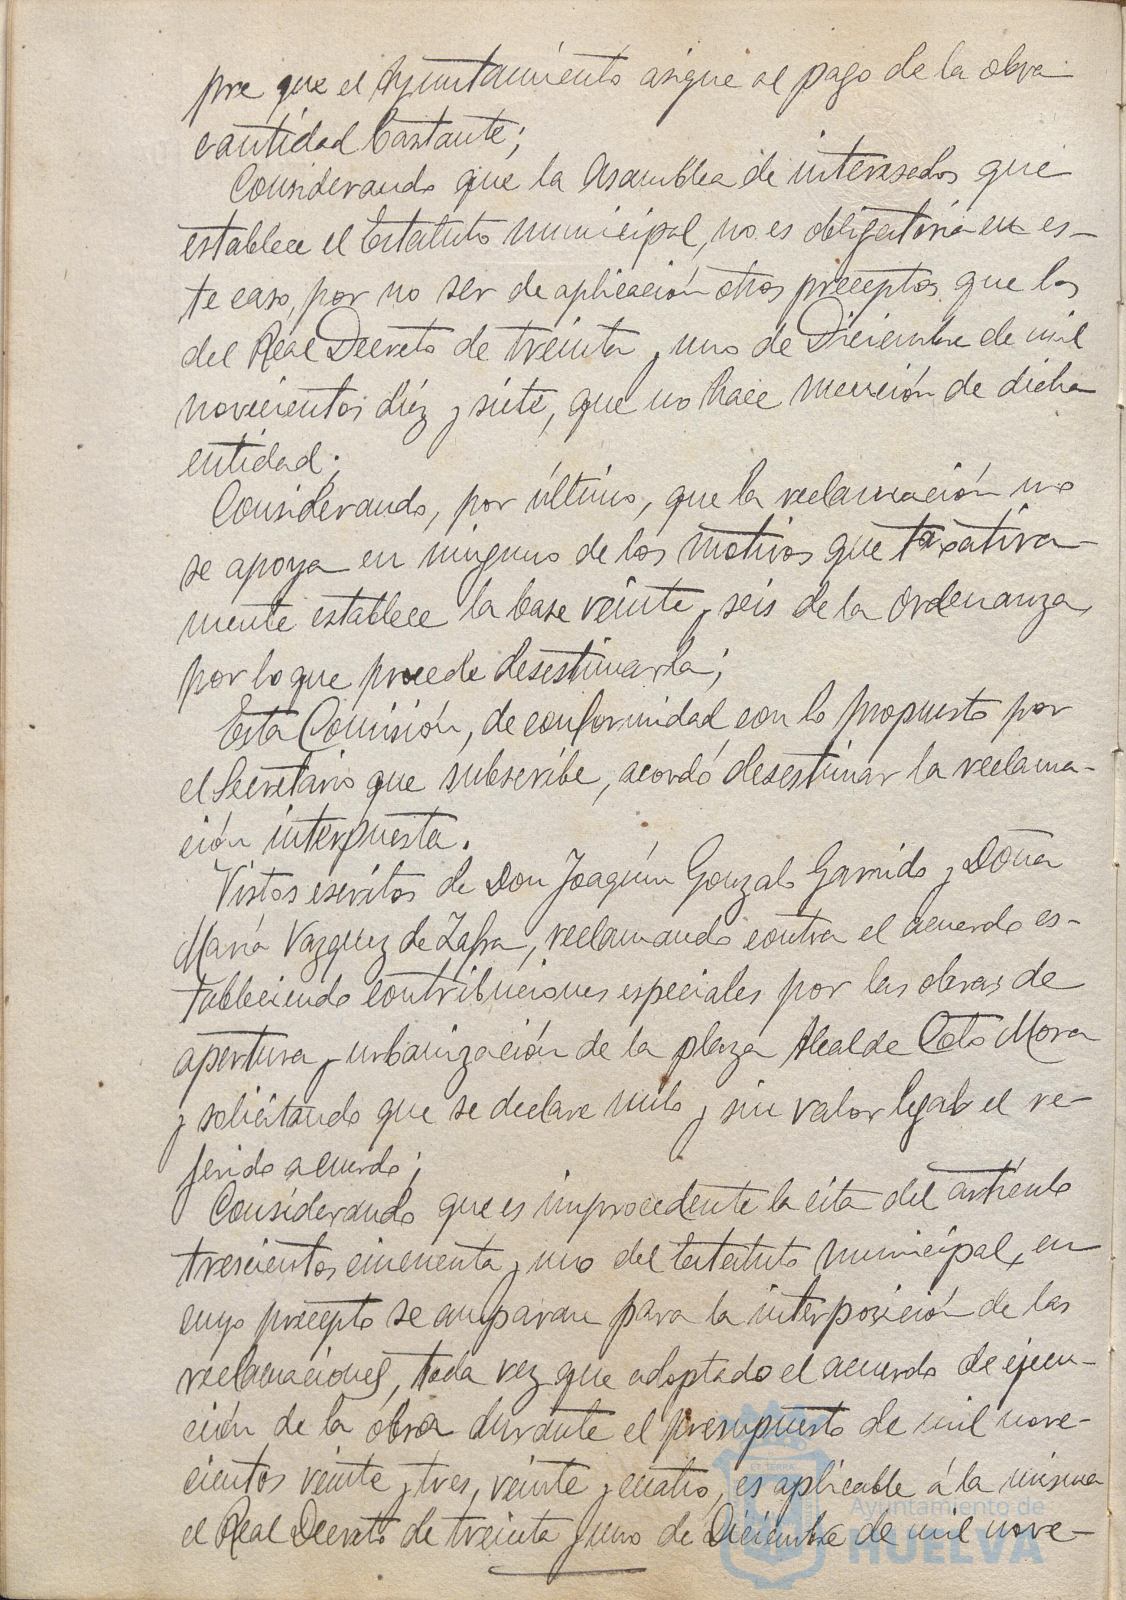 pre que el Ayuntamiento asigne al pago de la obra
cantidad bastante;
Considerando que la Asamblea de interesados que
establece el Estatuto municipal, no es obligatoria en es-
te caso, por no ser de aplicación otros preceptos que los
del Real Decreto de treinta y uno de Diciembre de mil
novecientos diez y siete, que no hace mención de dicha
entidad;
Considerando, por último, que la reclamación no
se apoya en ninguno de los motivos que taxativa-
mente establece la base veinte y seis de la Ordenanza,
por lo que procede desestimarla;
Esta Comisión, de conformidad con lo propuesto por
el Secretario que subscribe, acordó desestimar la reclama-
ción interpuesta.
Vistos escritos de Don Joaquín Gonzalo Garrido y Doña
María Vazquez de Zafra, reclamando contra el acuerdo es-
tableciendo contribuciones especiales por las obras de
apertura y urbanización de la plaza Alcalde Coto Mora
y solicitando que se declare nulo y sin valor legal el re-
ferido acuerdo;
Considerando que es improcedente la cita del artículo
trescientos cincuenta y uno del Estatuto municipal, en
cuyo precepto se amparan para la interposición de las
reclamaciones, toda vez que adoptado el acuerdo de ejecu-
ción de la obra durante el presupuesto de mil nove-
cientos veinte y tres, veinte y cuatro, es aplicable á la misma
el Real Decreto de treinta y uno de Diciembre de mil nove-
Ayuntamiento de
HUELVA